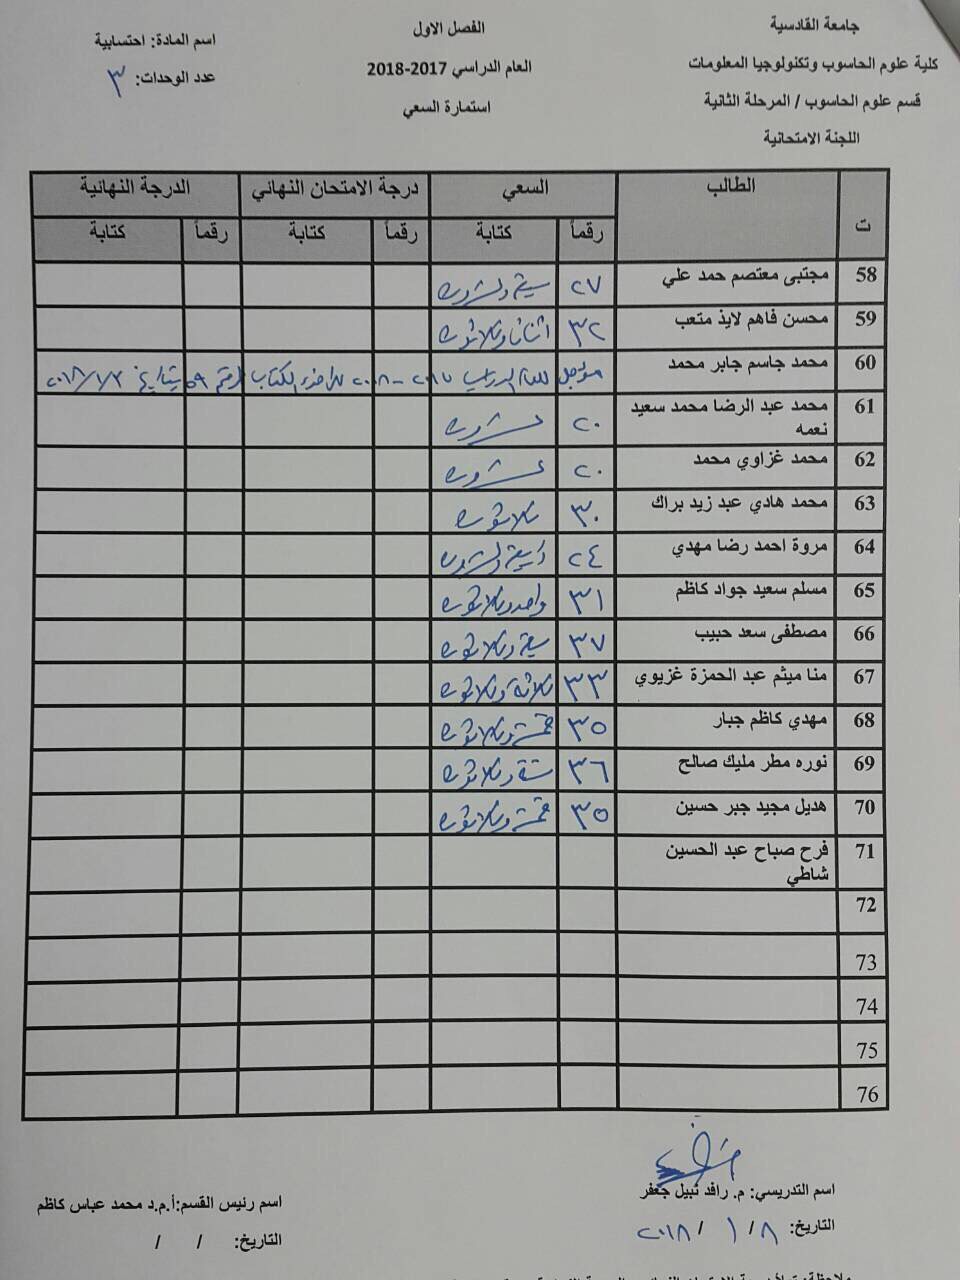 جامعة القادسية
كلية علوم الحاسوب وتكنولوجيا المعلومات
قسم علوم الحاسوب / المرحلة الثانية
اللجنة الامتحانية
الفصل الاول
العام الدراسي 2017-2018
استمارة السعي
اسم المادة: احتسابية
عدد الوحدات: ٣
ت الطالب السعي درجة الامتحان النهائي الدرجة النهائية
رقماً كتابة رقماً كتابة رقماً كتابة
58 مجتبى معتصم حمد علي ٢٧ سبعة وعشرون
59 محسن فاهم لايذ متعب ٣٢ اثنان وثلاثون
60 محمد جاسم جابر محمد مؤجل للعام الدراسي ٢٠١٧-٢٠١٨ الكتاب المرقم ٥٩ بتاريخ ٢٠١٨/١/٣
61 محمد عبد الرضا محمد سعيد نعمه ٢٠ عشرون
62 محمد غزاوي محمد ٢٠ عشرون
63 محمد هادي عبد زيد براك ٣٠ ثلاثون
64 مروة احمد رضا مهدي ٢٤ اربعة وعشرون
65 مسلم سعيد جواد كاظم ٣١ واحد وثلاثون
66 مصطفى سعد حبيب ٣٧ سبعة وثلاثون
67 منا ميثم عبد الحمزة غزيوي ٣٣ ثلاثة وثلاثون
68 مهدي كاظم جبار ٣٥ خمسة وثلاثون
69 نوره مطر مليك صالح ٣٦ ستة وثلاثون
70 هديل مجيد جبر حسين ٣٥ خمسة وثلاثون
71 فرح صباح عبد الحسين شاطي
72
73
74
75
76
اسم التدريسي: م. رافد نبيل جعفر
التاريخ: ٨ / ١ / ٢٠١٨
اسم رئيس القسم:أ.م.د محمد عباس كاظم
التاريخ: / /